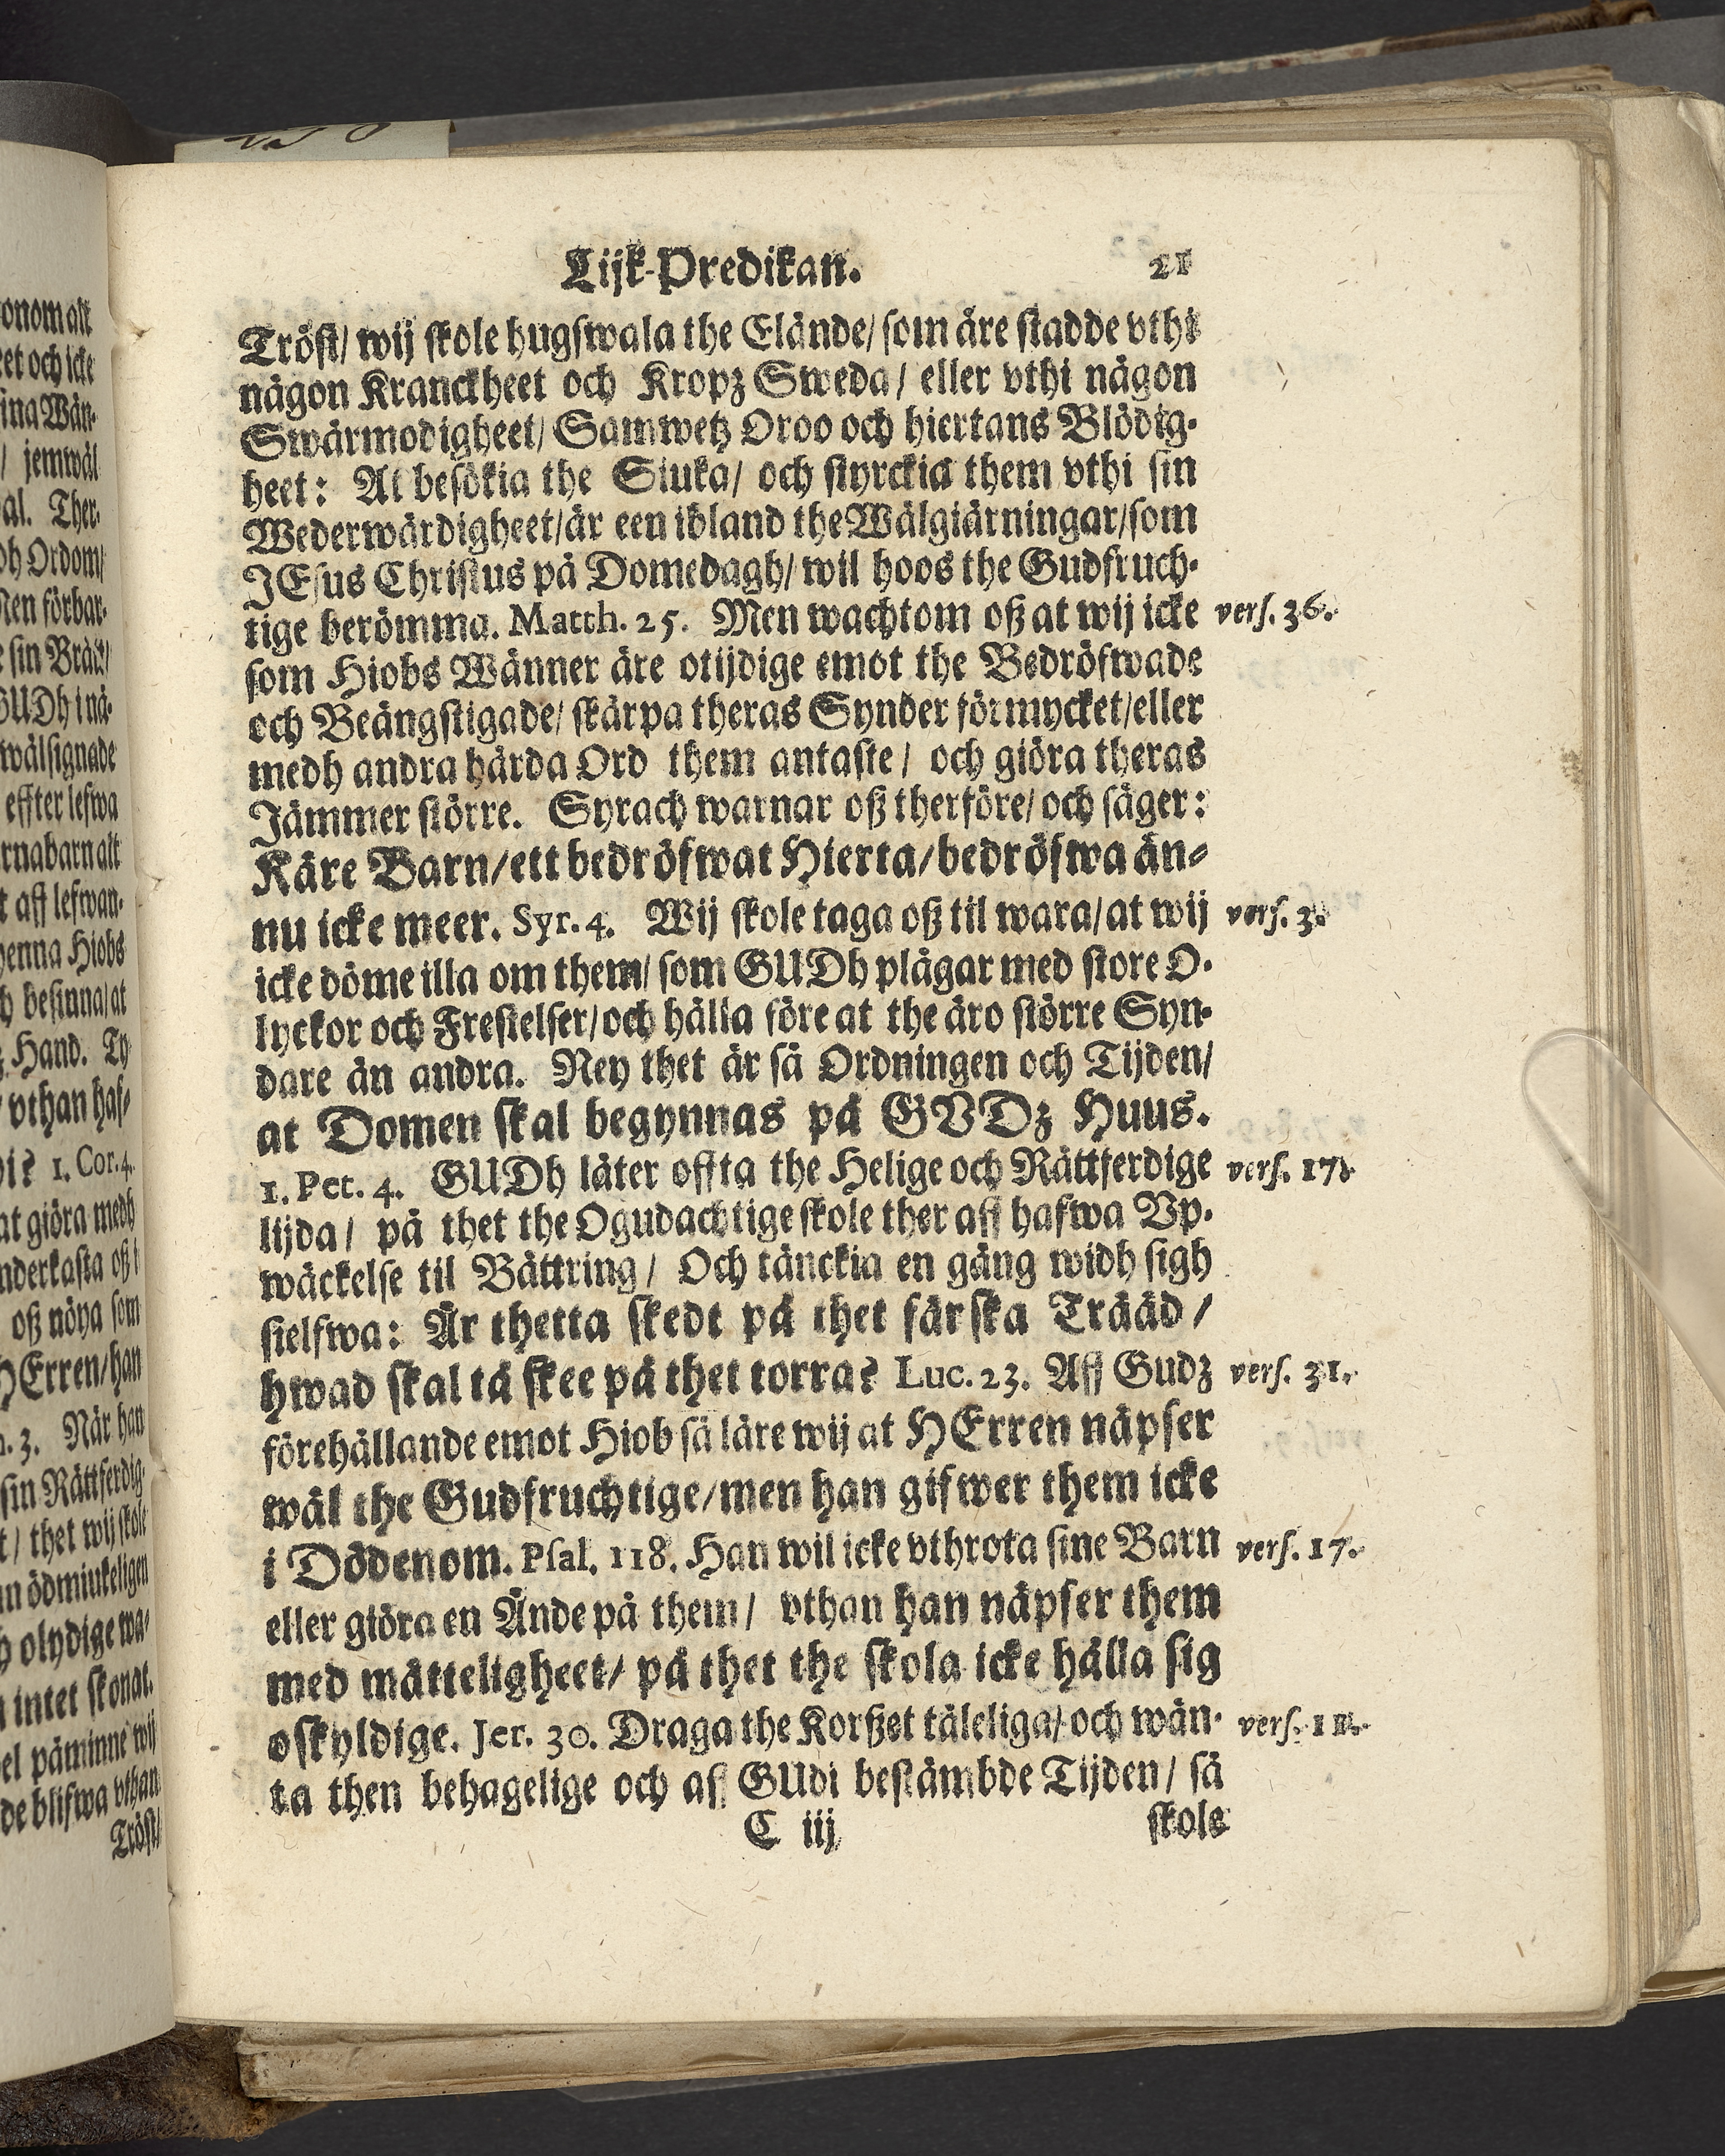 Lijk-Predikan. 21
Tröst/ wij skole hugswala the Elände/ som äre stadde vthi
någon Kranckheet och Kropz Sweda/ eller vthi någon
Swårmodigheet/ Samwetz Oroo och hiertans Blödig-
heet: At besökia the Siuka/ och styrckia them vthi sin
Wederwärdigheet/är een ibland the Wälgiärningar/som
JEsus Christus på Domedagh/ wil hoos the Gudfruch-
tige berömma. Matth. 25. Men wachtom oß at wij icke vers. 36.
som Hiobs Wänner äre otijdige emot the Bedröfwade
och Beängstigade/ skärpa theras Synder förmycket/eller
medh andra hårda Ord them antaste/ och giöra theras
Jämmer större. Syrach warnar oß therföre/ och säger:
Käre Barn/ett bedröfwat Hierta/bedröfwa än-
nu icke meer. Syr. 4. Wij skole taga oß til wara/at wij vers. 3.
icke döme illa om them/ som GUDh plågar med store O-
lyckor och Frestelser/och hålla före at the äro större Syn-
dare än andra. Ney thet är så Ordningen och Tijden/
at Domen skal begynnas på GVDz Huus.
1. Pet. 4. GUDh låter offta the Helige och Rättferdige vers. 17.
lijda/ på thet the Ogudachtige skole ther aff hafwa Vp-
wäckelse til Bättring/ Och tänckia en gång widh sigh
sielfwa: Är thetta skedt på thet färska Trääd/
hwad skal tå skee på thet torra? Luc. 23. Aff Gudz vers. 31.
förehållande emot Hiob så läre wij at HErren näpser
wäl the Gudfruchtige/men han gifwer them icke
i Dödenom. Psal. 118. Han wil icke vthrota sine Barn vers. 17.
eller giöra en Ände på them/ vthan han näpser them
med måtteligheet/ på thet the skola icke hålla sig
oskyldige. Jer. 30. Draga the Korßet tåleliga/ och wän- vers. 11.
ta then behagelige och aff GUdi bestämbde Tijden/ så
C iij skole